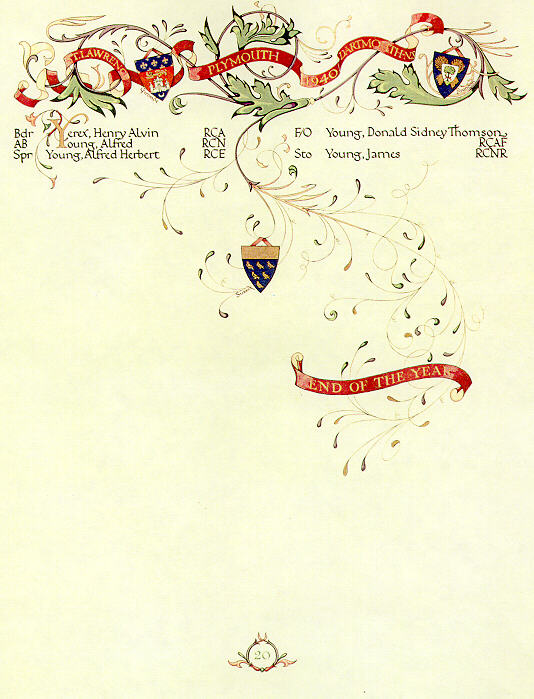 ST. LAWRENCE PLYMOUTH 1940 DARTMOUTH-NS
Bdr Yerex, Henry Alvin RCA
AB Young, Alfred RCN
Spr Young, Alfred Herbert RCE
F/O Young, Donald Sidney Thomson
RCAF
Sto Young, James RCNR
Sussex
END OF THE YEAR
20